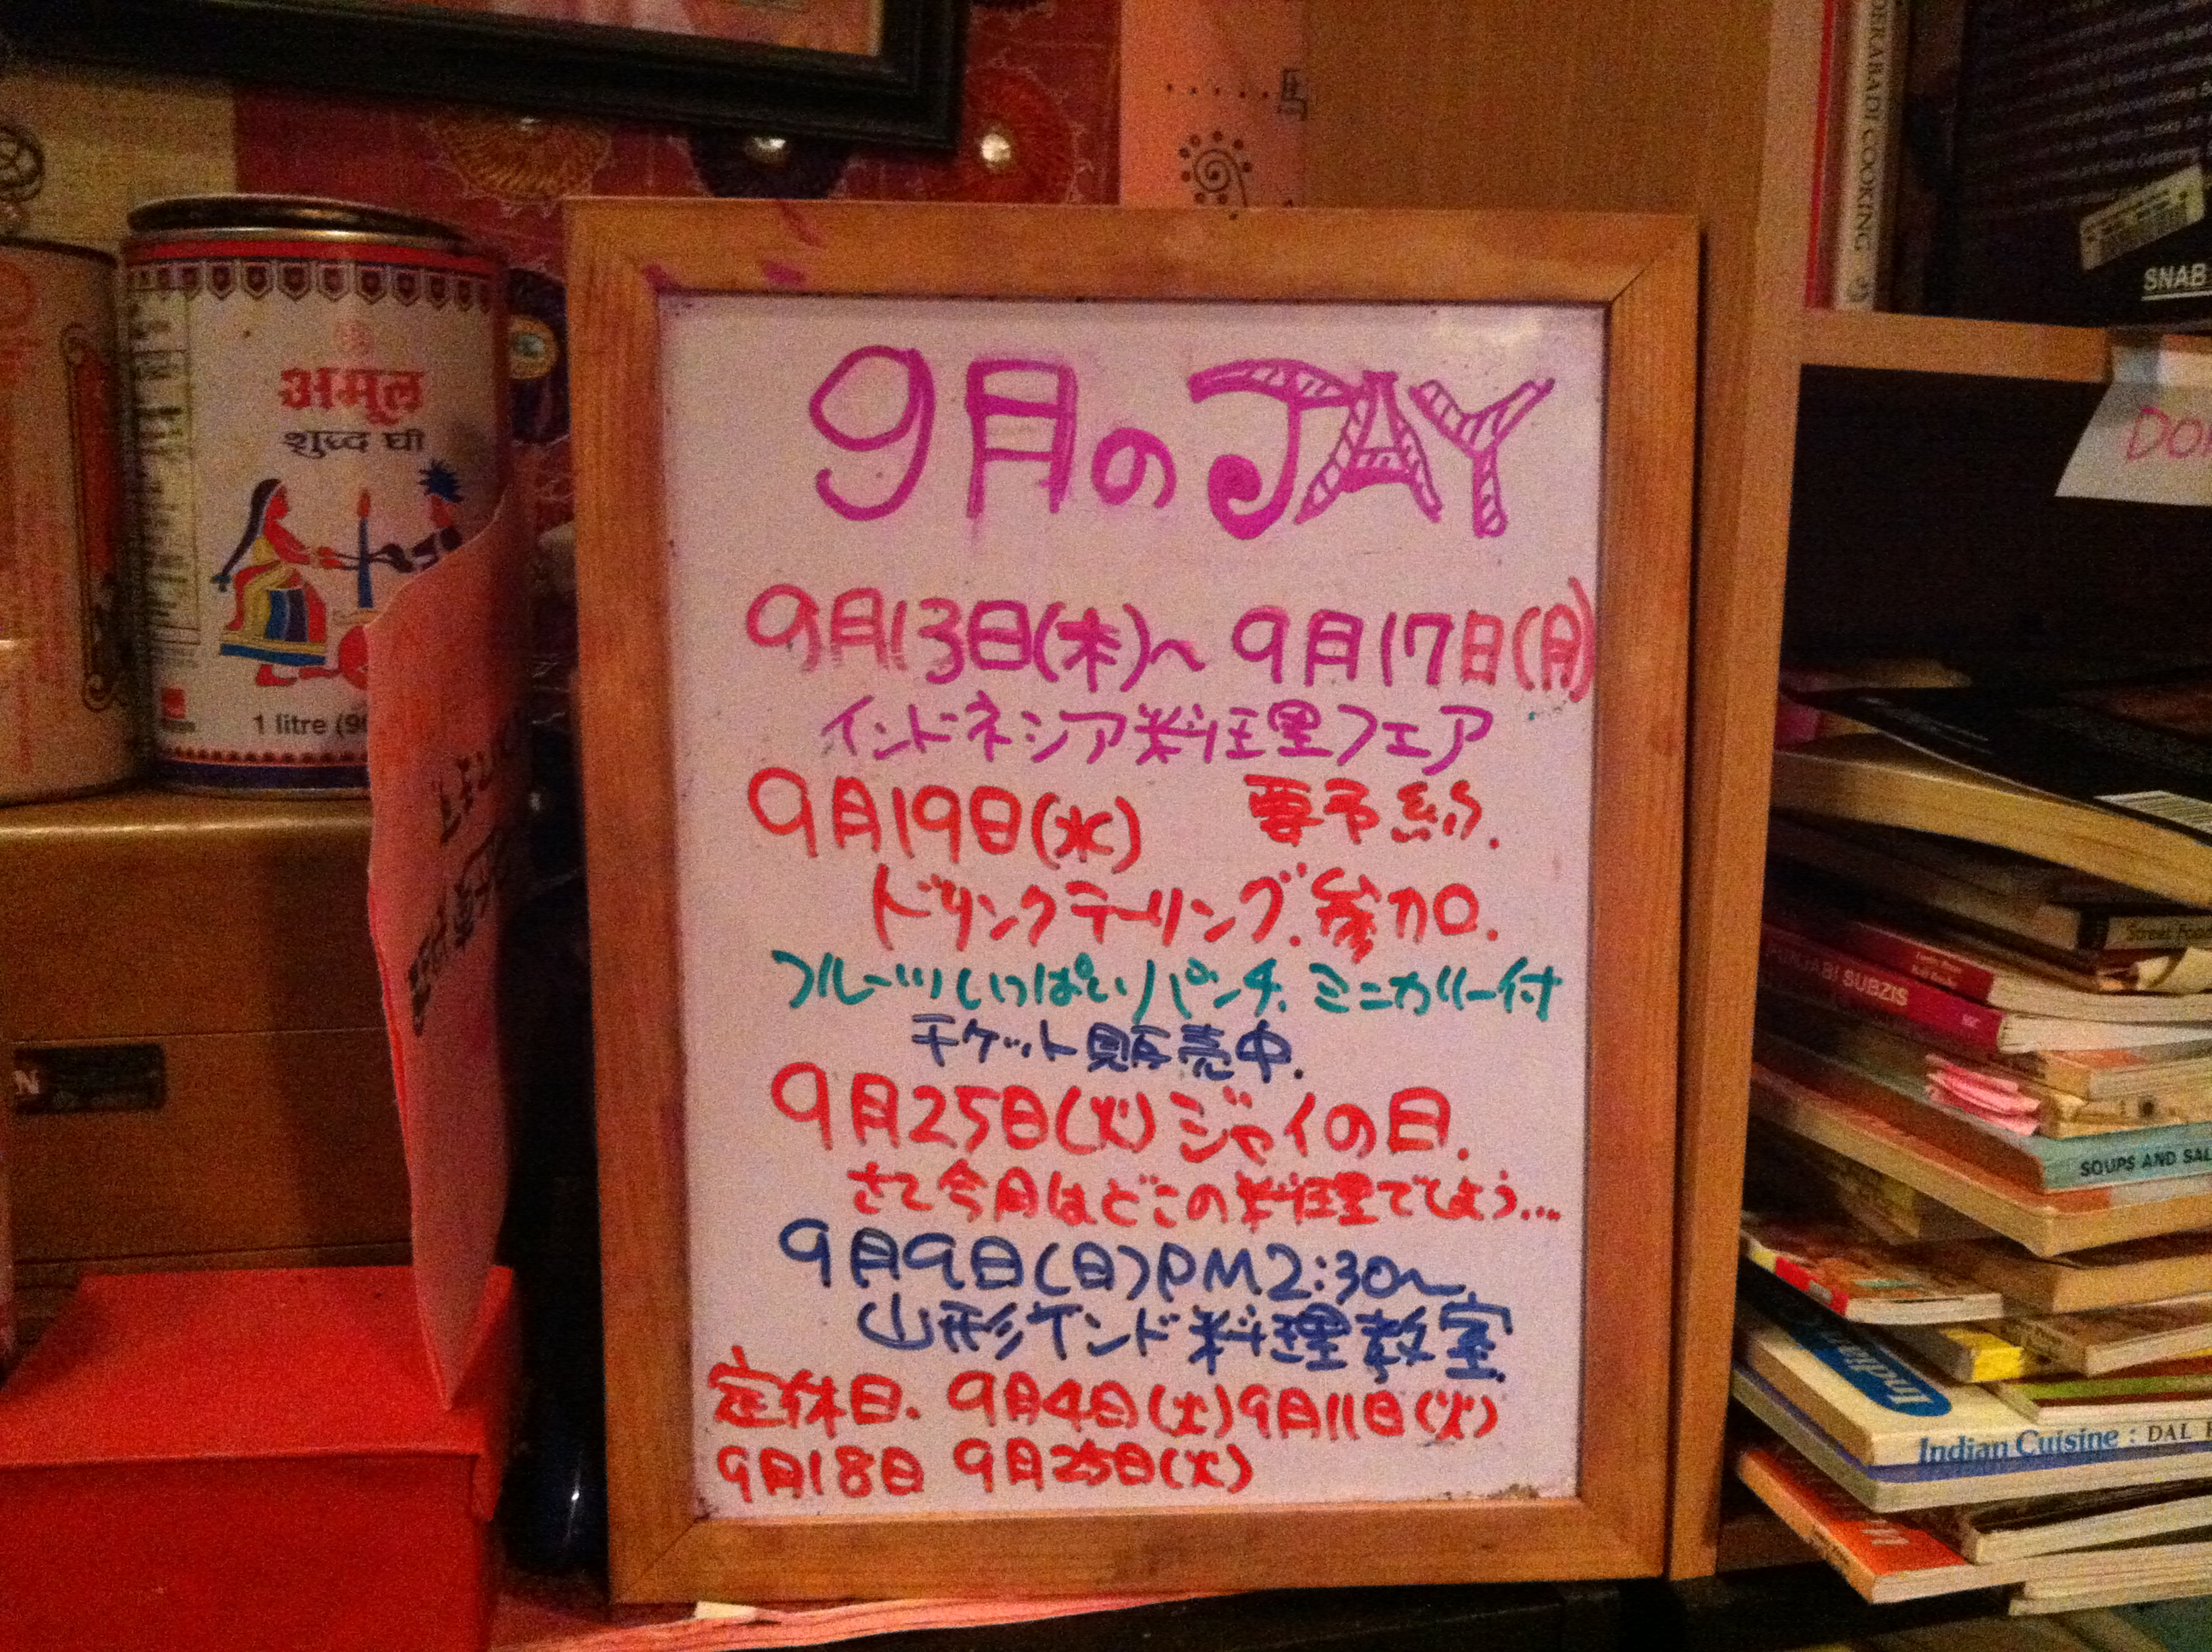 9月のJAY
9月13日(木)～9月17日(月)
インドネシア料理フェア
9月19日(水) 要予約.
ドリンクラーリング.参加.
フルーツいっぱいパンチ.ミニカリー付
チケット販売中.
9月25日(火)ジャイの日.
さて今月はどこの料理でしょう...
9月9日(日)PM2:30～
山形インド料理教室.
定休日. 9月4日(火)9月11日(火)
9月18日 9月25日(火)
अमूल
शुद्ध घी
1 litre
馬
COOKING
SNAB
PUNJABI SUBZIS
SOUPS AND SAL
Indian Cuisine : DAL